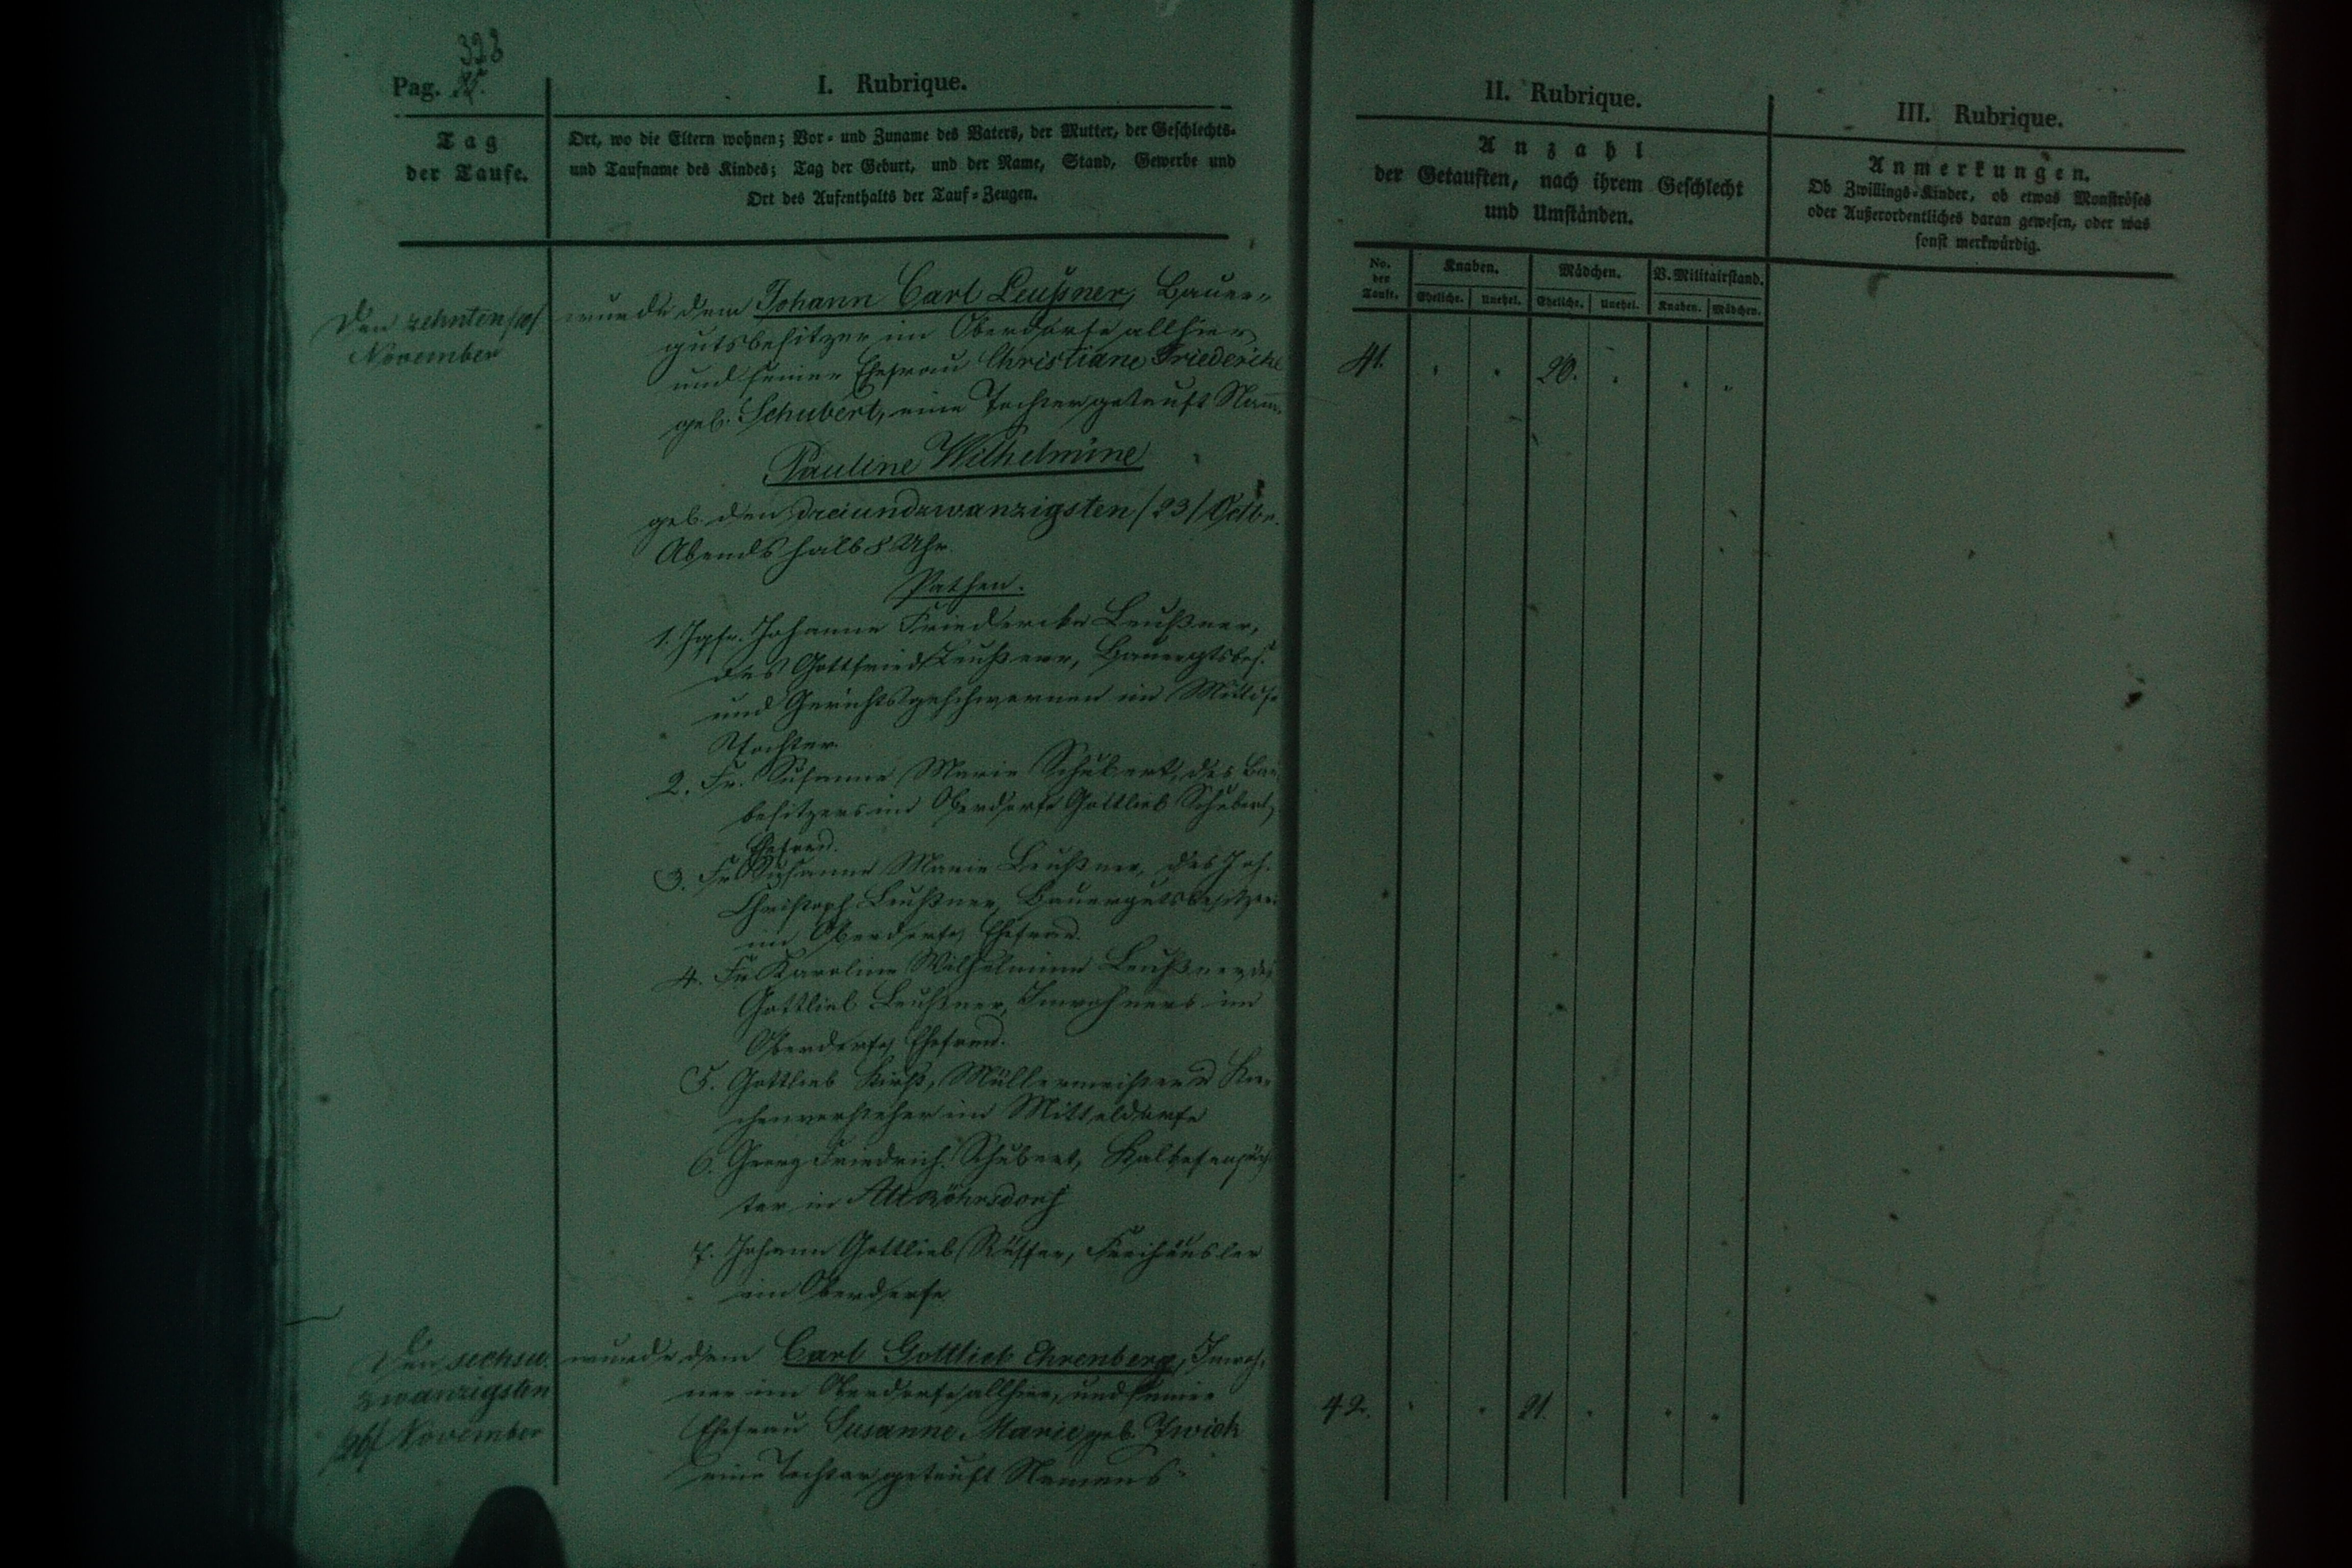 323
Pag.
I. Rubrique.
Tag
der Taufe.
Ort, wo die Eltern wohnen; Vor- und Zuname des Vaters, der Mutter, der Geschlechts-
und Taufname des Kindes; Tag der Geburt, und der Name, Stand, Gewerbe und
Ort des Aufenthalts der Tauf-Zeugen.
Den zehnten /10/
November
wurde dem Johann Carl Leußner, Bauer-
gutsbesitzer im Oberdorfe allhier
und seiner Ehefrau Christiane Friedericke
geb. Schubert, eine Tochter getauft Nam.
Pauline Wilhelmine
geb. den dreiundzwanzigsten /23/ Octbr.
Abends halb 8 Uhr.
Pathen.
1. Jgfr. Johanne Friedericke Leußner,
des Gottfried Leußner, Bauergtsbes.
und Gerichtsgeschwornen im
Tochter.
2. Fr. Susanne Marie Schubert, des
besitzers im Oberdorfe Gottlieb Schubert,
Ehefrau.
3. Fr. Susanne Marie Leußner, des Joh.
Christoph Leußner, Bauergutsbesitzer
im Oberdorfe, Ehefrau.
4. Fr. Karoline Wilhelmine Leußner, des
Gottlieb Leußner, Inwohners im
Oberdorfe, Ehefrau.
5. Gottlieb Müllermeister u Kir-
chenvorsteher im Mitteldorfe
6. Georg Friedrich Schubert,
ter in Alt Röhrsdorf
7. Johann Gottlieb Rüffer, Freihäusler
im Oberdorfe
Den sechsu.
zwanzigsten
/26/ November
wurde dem Carl Gottlieb Ehrenberg, Inwoh-
ner im Oberdorfe allhier, und seiner
Ehefrau Susanne Marie geb. Zwick
eine Tochter getauft Namens
II. Rubrique.
Anzahl
der Getauften, nach ihrem Geschlecht
und Umständen.
No.
der
Taufe.
Knaben.
Mädchen.
V. Militairstand.
Eheliche. Unehel. Eheliche. Unehel. Knaben. Mädchen.
41. 20.
42. 21.
III. Rubrique.
Anmerkungen.
Ob Zwillings-Kinder, ob etwas Monströses
oder Außerordentliches daran gewesen, oder was
sonst merkwürdig.